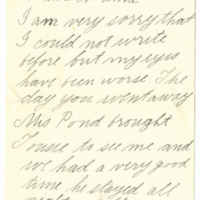 I am very sorry that
I could not write
before but my eyes
have been worse. The
day you went away
Mis Pond brought
Tousie to see me and
we had a very good
time he stayed all